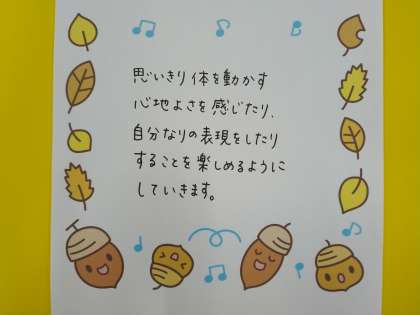 思いきり体を動かす
心地よさを感じたり、
自分なりの表現をしたり
することを楽しめるように
していきます。